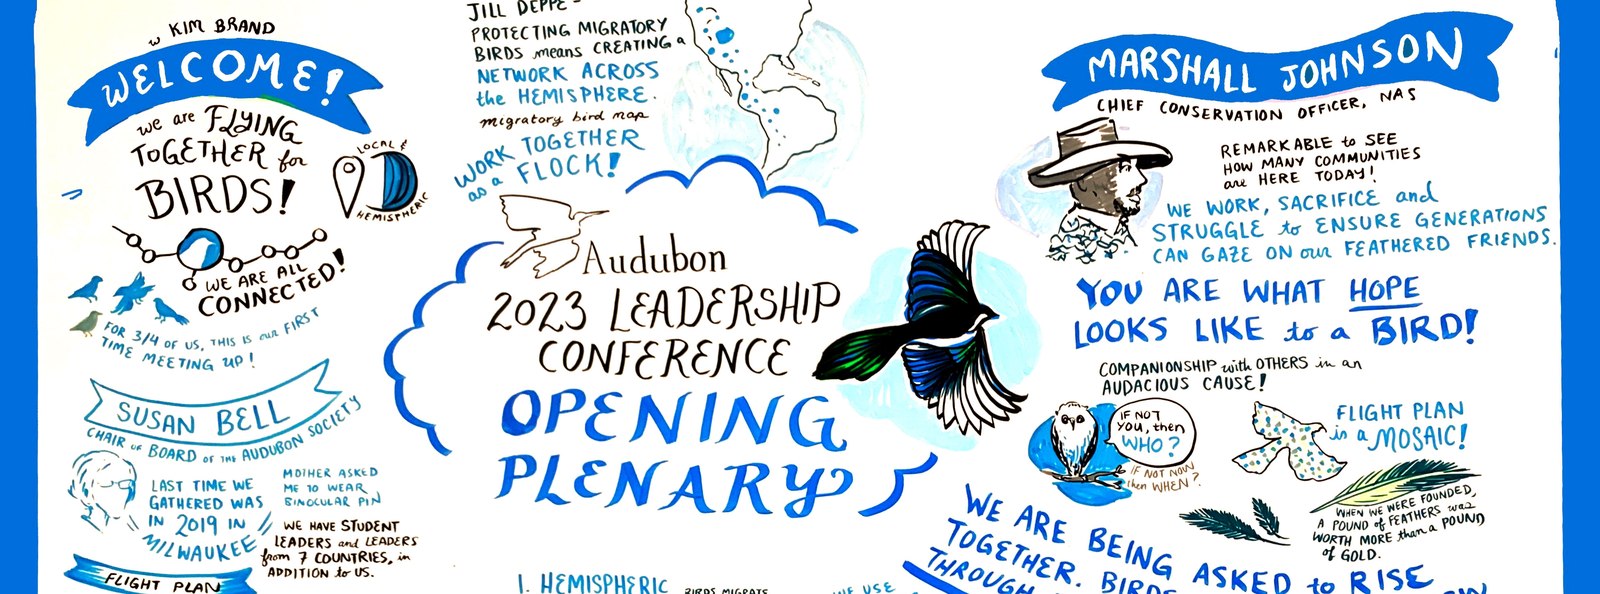 w KIM BRAND
WELCOME!
we are FLYING
TOGETHER for
BIRDS!
LOCAL &
HEMISPHERIC
WE ARE ALL
CONNECTED!
FOR 3/4 OF US, THIS IS our FIRST
TIME MEETING UP!
SUSAN BELL
CHAIR of BOARD OF THE AUDUBON SOCIETY
LAST TIME WE
GATHERED WAS
IN 2019 IN
MILWAUKEE
MOTHER ASKED
ME TO WEAR
BINOCULAR PIN
WE HAVE STUDENT
LEADERS and LEADERS
from 7 COUNTRIES, in
ADDITION to US.
FLIGHT PLAN
JILL DEPPE -
PROTECTING MIGRATORY
BIRDS means CREATING a
NETWORK ACROSS
the HEMISPHERE.
migratory bird map
WORK TOGETHER
as a FLOCK!
Audubon
2023 LEADERSHIP
CONFERENCE
OPENING
PLENARY
1. HEMISPHERIC
BIRDS MIGRATE
WE USE
MARSHALL JOHNSON
CHIEF CONSERVATION OFFICER, NAS
REMARKABLE to SEE
HOW MANY COMMUNITIES
are HERE TODAY!
WE WORK, SACRIFICE and
STRUGGLE to ENSURE GENERATIONS
CAN GAZE ON our FEATHERED FRIENDS.
YOU ARE WHAT HOPE
LOOKS LIKE to a BIRD!
COMPANIONSHIP with OTHERS in an
AUDACIOUS CAUSE!
IF NOT
YOU, then
WHO?
IF NOT NOW
then WHEN?
FLIGHT PLAN
is a MOSAIC!
WHEN WE WERE FOUNDED,
A POUND of FEATHERS was
WORTH MORE than a POUND
of GOLD.
WE ARE BEING ASKED to RISE
TOGETHER. BIRDS
THROUGH